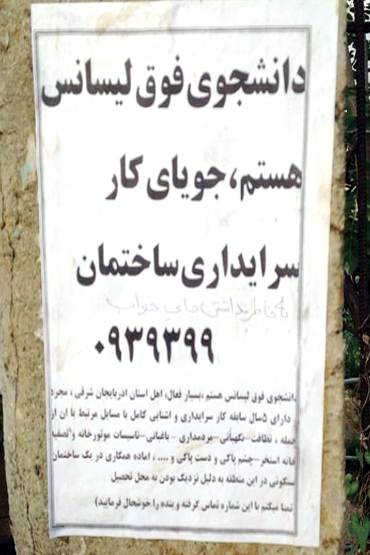 دانشجوی فوق لیسانس
هستم، جویای کار
سرایداری ساختمان
به خاطر نداشتن جای خواب
۰۹۳۹۳۹۹
دانشجوی فوق لیسانس هستم ،بسیار فعال، اهل استان اذربایجان شرقی ، مجرد
دارای ۵سال سابقه کار سرایداری و اشنایی کامل با مسایل مرتبط با ان از
جمله ، نظافت-نگهبانی-مردمداری -باغبانی-تاسیسات موتورخانه و تصفیه
خانه استخر-چشم پاکی و دست پاکی و .... ، اماده همکاری در یک ساختمان
مسکونی در این منطقه به دلیل نزدیک بودن به محل تحصیل
تمنا میکنم با این شماره تماس گرفته و بنده را خوشحال فرمایید)